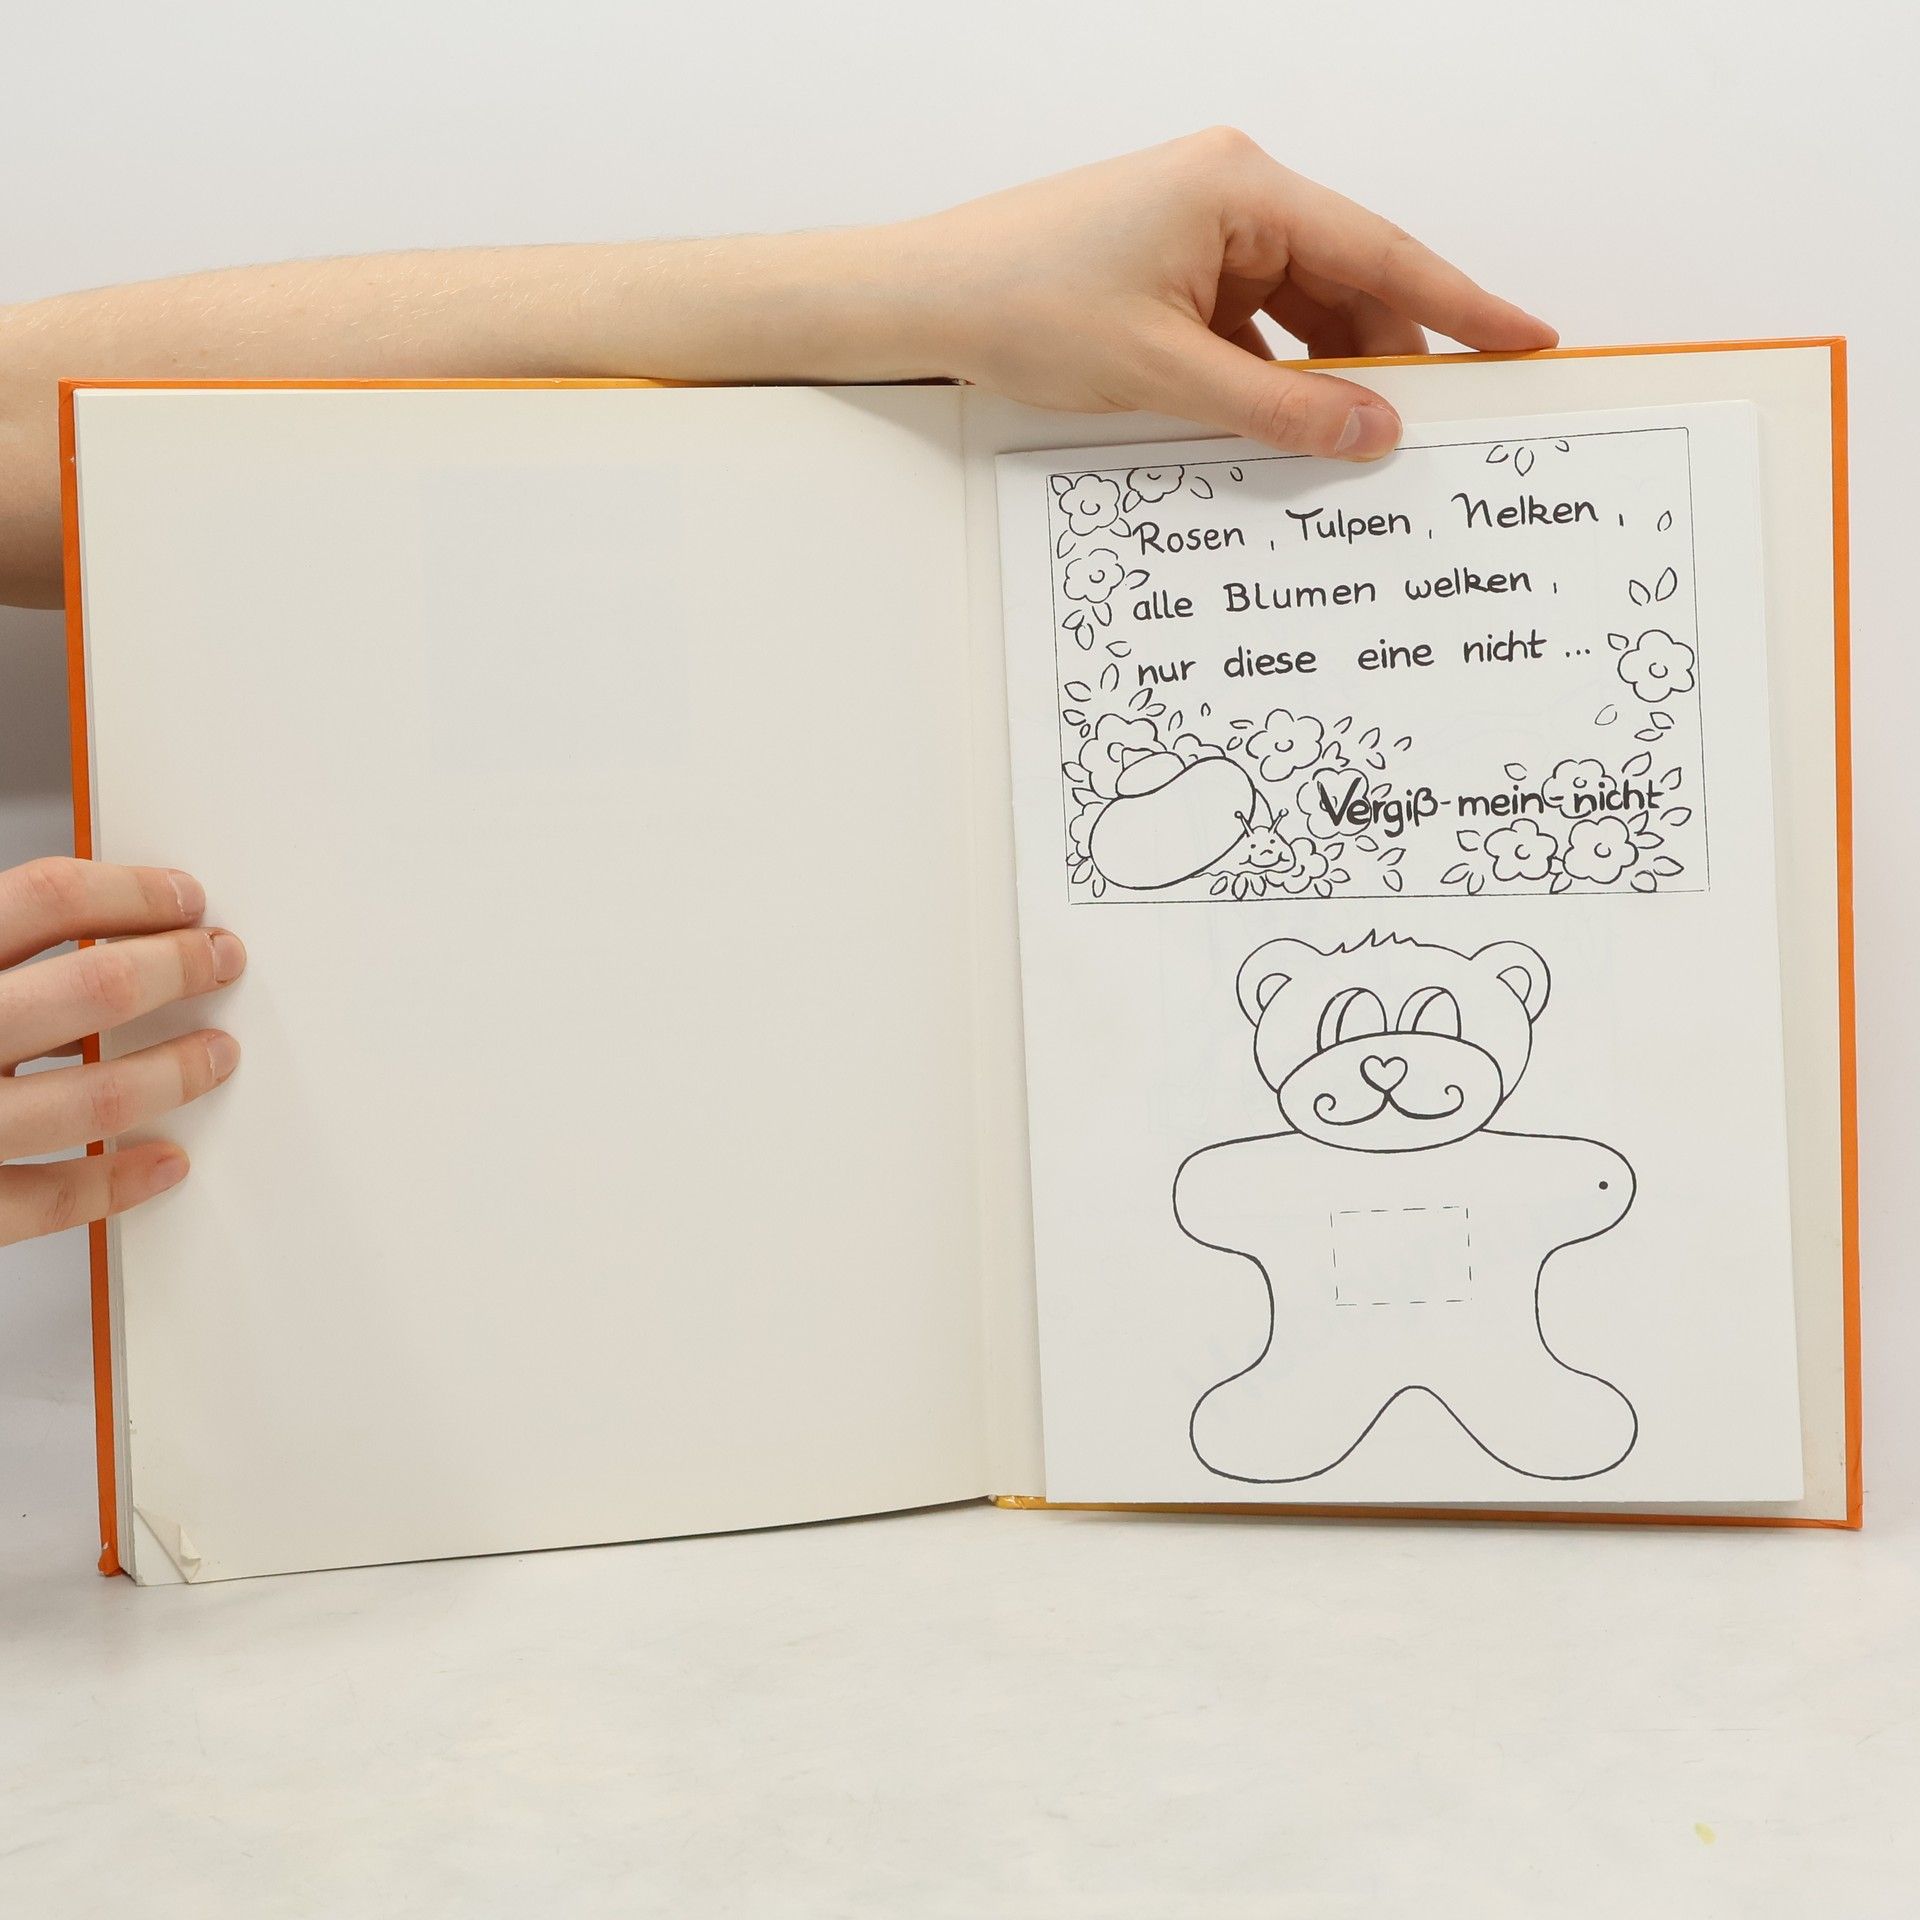 Rosen, Tulpen, Nelken,
alle Blumen welken,
nur diese eine nicht...
Vergiß-mein-nicht